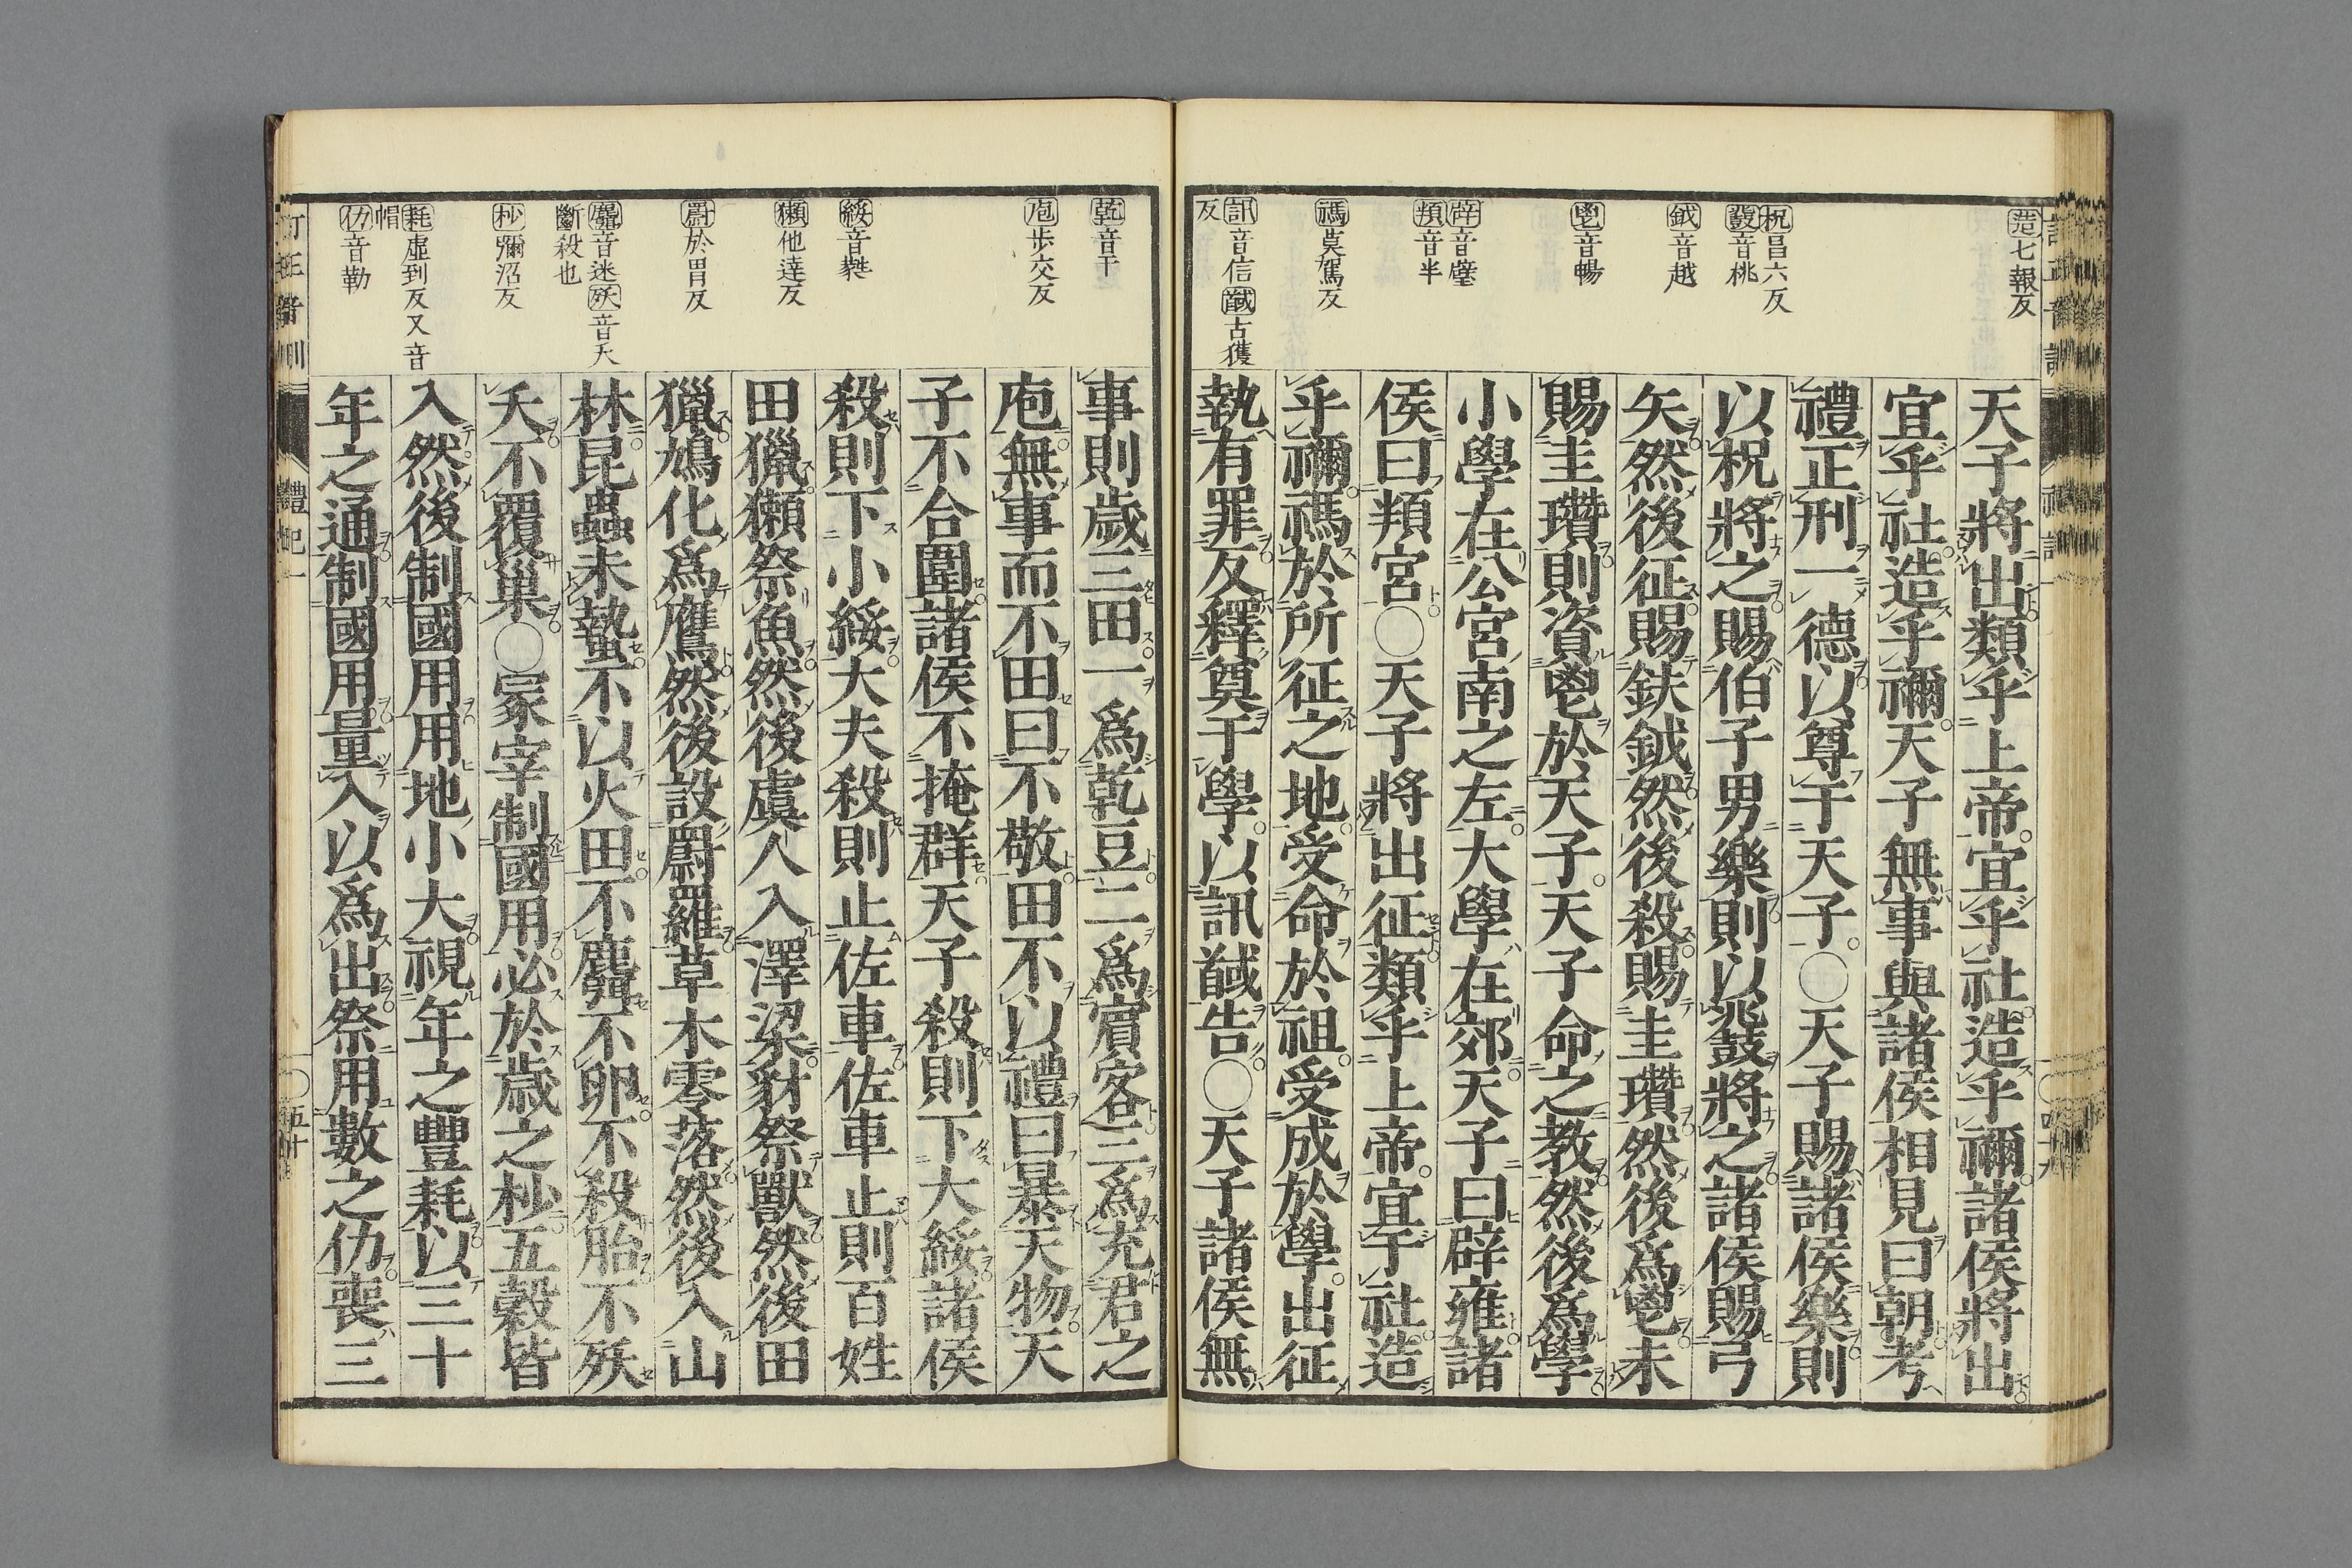 造七報反
祝昌六反
鼗音桃
鉞音越
鬯音暢
辟音璧
頖音半
禡莫駕反
訊音信馘古獲
反
天子將出類乎上帝宜乎社造乎禰諸侯將出
宜乎社造乎禰天子無事與諸侯相見曰朝考
禮正刑一德以尊于天子○天子賜諸侯樂則
以柷將之賜伯子男樂則以鼗將之諸侯賜弓
矢然後征賜鈇鉞然後殺賜圭瓚然後爲鬯未
賜圭瓚則資鬯於天子天子命之教然後爲學
小學在公宮南之左大學在郊天子曰辟雍諸
侯曰頖宮○天子將出征類乎上帝宜于社造
乎禰禡於所征之地受命於祖受成於學出征
執有罪反釋奠于學以訊馘告○天子諸侯無
乾音干
庖步交反
綏音緌
獺他達反
罻於胃反
麛音迷殀音夭
斷殺也
杪彌沼反
耗虛到反又音
帽
仂音勒
事則歲三田一爲乾豆二爲賓客三爲充君之
庖無事而不田曰不敬田不以禮曰暴天物天
子不合圍諸侯不掩群天子殺則下大綏諸侯
殺則下小綏大夫殺則止佐車佐車止則百姓
田獵獺祭魚然後虞人入澤梁豺祭獸然後田
獵鳩化爲鷹然後設罻羅草木零落然後入山
林昆蟲未蟄不以火田不麛不卵不殺胎不殀
夭不覆巢○冢宰制國用必於歲之杪五穀皆
入然後制國用用地小大視年之豐耗以三十
年之通制國用量入以爲出祭用數之仂喪三
訂正音訓
禮記一
五十